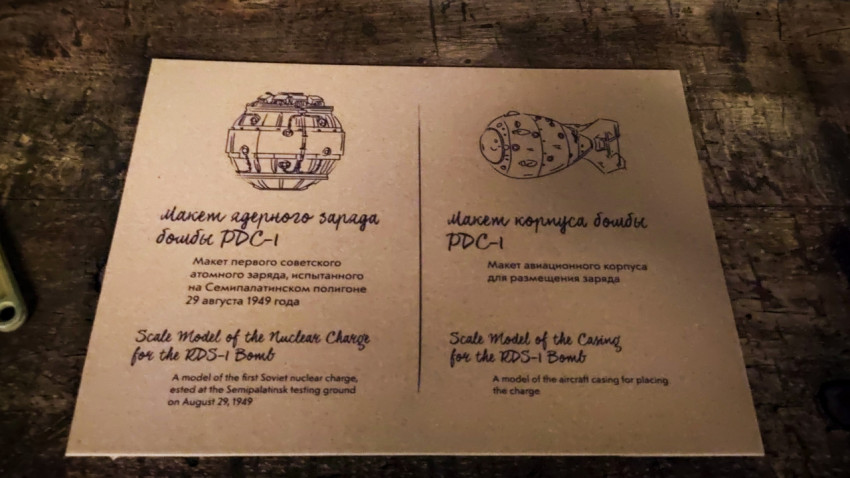 Макет ядерного заряда
бомбы РДС-1
Макет первого советского
атомного заряда, испытанного
на Семипалатинском полигоне
29 августа 1949 года
Scale Model of the Nuclear Charge
for the RDS-1 Bomb
A model of the first Soviet nuclear charge,
ested at the Semipalatinsk testing ground
on August 29, 1949
Макет корпуса бомбы
РДС-1
Макет авиационного корпуса
для размещения заряда
Scale Model of the Casing
for the RDS-1 Bomb
A model of the aircraft casing for placing
the charge